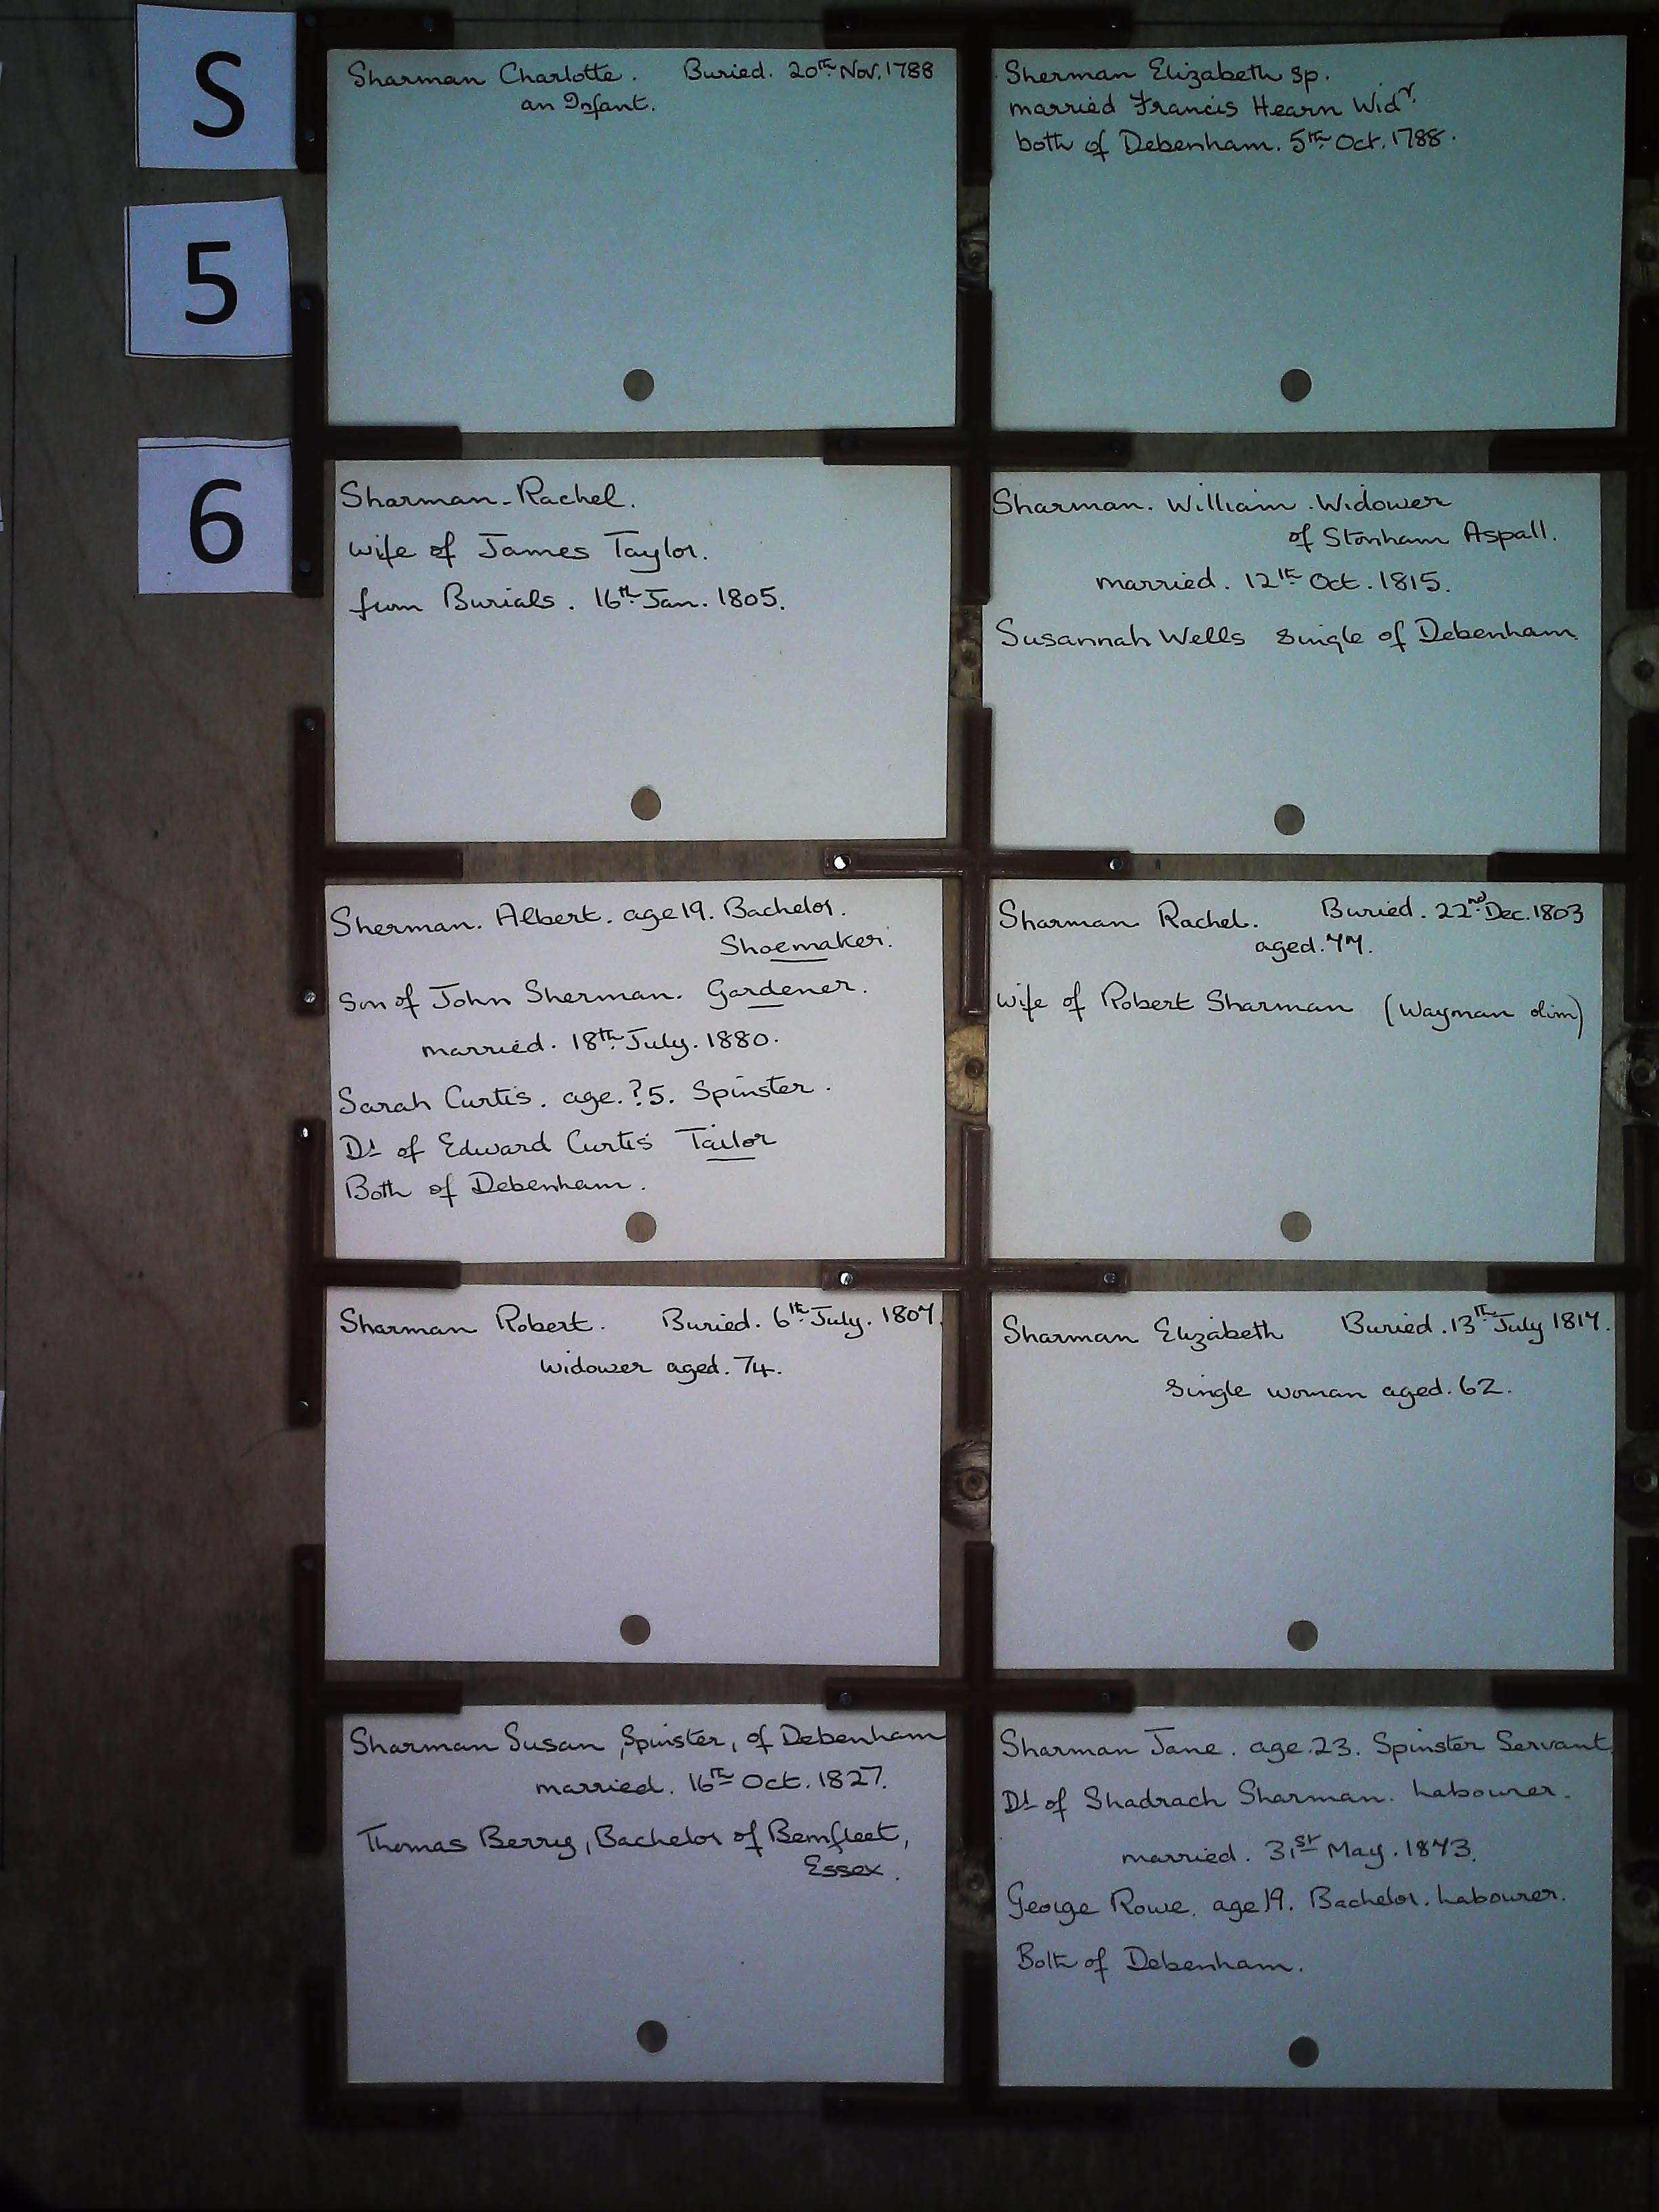 S
5
6
Sharman Charlotte. Buried. 20th Nov. 1788
an Infant.
Sherman Elizabeth sp.
married Francis Hearn Widr.
both of Debenham. 5th Oct. 1788.
Sharman - Rachel.
wife of James Taylor.
from Burials. 16th Jan. 1805.
Sharman. William. Widower
of Stonham Aspall.
married. 12th Oct. 1815.
Susannah Wells single of Debenham.
Sherman. Albert. age 19. Bachelor.
Shoemaker.
Son of John Sherman. Gardener.
married. 18th July. 1880.
Sarah Curtis. age. ?5. Spinster.
Dt of Edward Curtis Tailor
Both of Debenham.
Sharman Rachel. Buried. 22nd Dec. 1803
aged. 77.
wife of Robert Sharman (Wayman olim)
Sharman Robert. Buried. 6th July. 1807.
widower aged. 74.
Sharman Elizabeth Buried. 13th July 1817.
single woman aged. 62.
Sharman Susan, Spinster, of Debenham
married. 16th Oct. 1827.
Thomas Berry, Bachelor of Bemfleet,
Essex.
Sharman Jane. age. 23. Spinster Servant.
Dt of Shadrach Sharman. Labourer.
married. 31st May. 1873.
George Rowe. age 19. Bachelor. Labourer.
Both of Debenham.